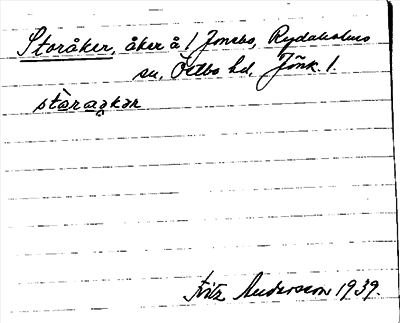 Storåker, åker å 1 Jonsbo, Rydaholms
sn, Östbo hd, Jönk. l.
stòraƍkər
Fritz Andersson 1939.